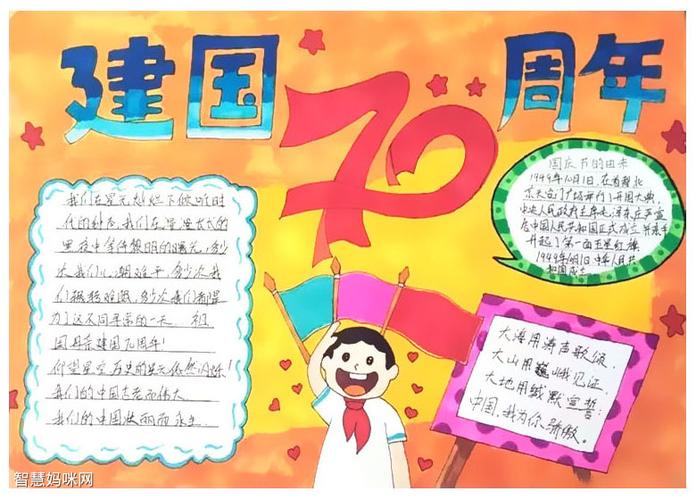 建国70周年
我们在星光灿烂下倾听时
代的钟声,我们在漫漫长长的
黑夜中等待黎明的曙光,多少
次我们心潮难平,多少次我
们振奋难眠,多少次我们都是
为了这不同寻常的一天。祖
国母亲建国70周年!
仰望星空历史的星光依然闪烁!
我们的中国古老而伟大
我们的中国壮丽而永生
国庆节的由来
1949年10月1日,在首都北
京天安门广场举行了开国大典
中央人民政府主席毛泽东庄严宣
告中国人民共和国正式成立并亲手
升起了第一面五星红旗
1949年10月1日中华人民共
和国成立
大海用涛声歌颂,
大山用巍峨见证,
大地用缄默宣誓:
中国,我为你骄傲。
智慧妈咪网